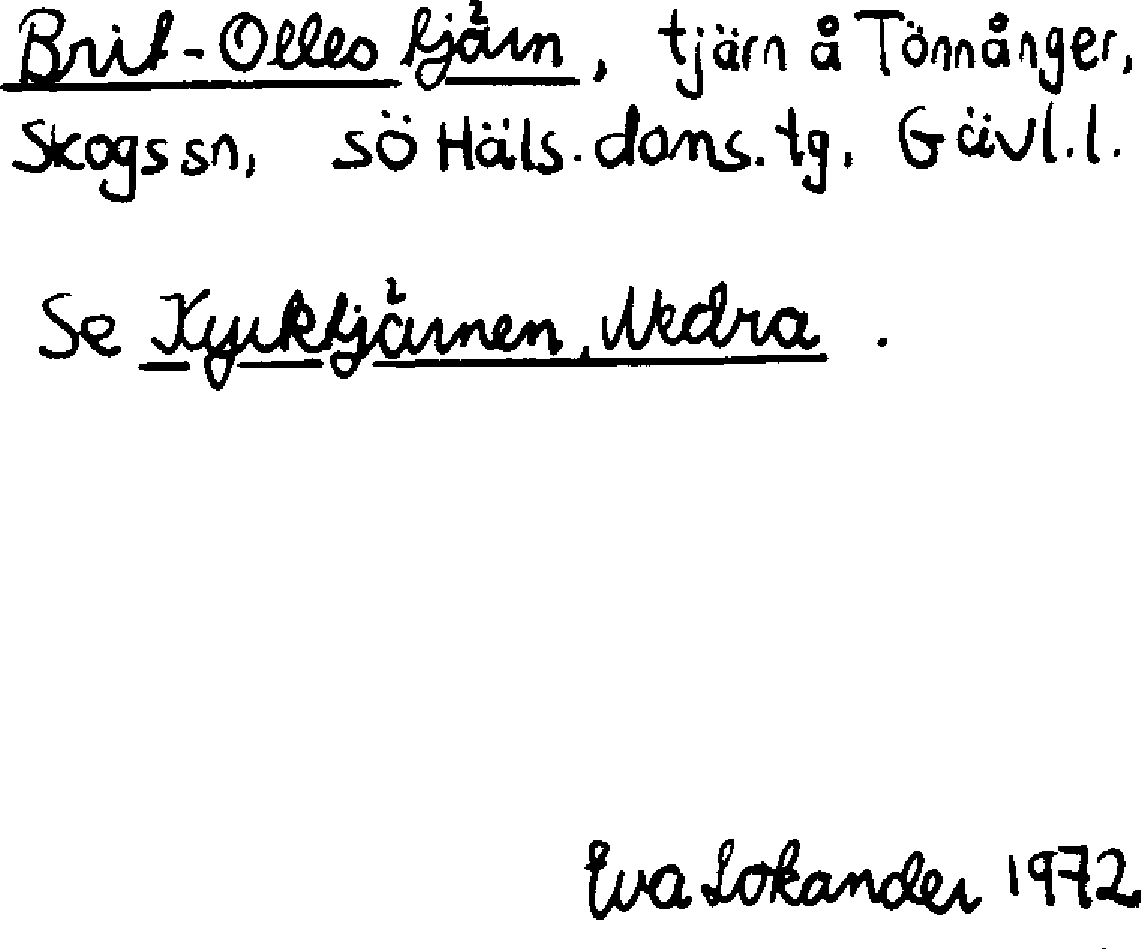 Brit-Olles tjärn, tjärn å Tönnånger,
Skogs sn, sö Häls. doms. tg, Gävl. l.
Se Kyrktjärnen, Nedra.
Eva Lokander 1972